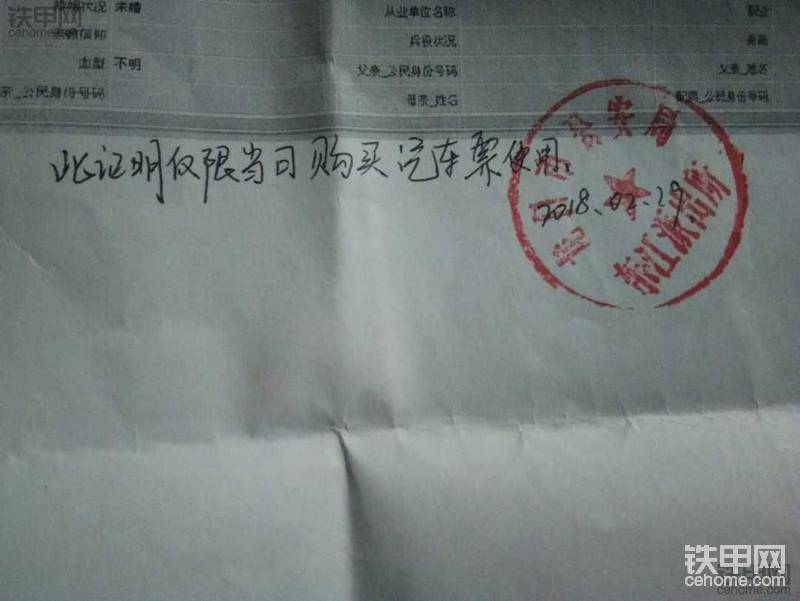 铁甲网
cehome.com
婚姻状况 未婚 从业单位名称 职业
宗教信仰 兵役状况 身高
血型 不明 父亲_公民身份号码 父亲_姓名
亲_公民身份号码 母亲_姓名 配偶_公民身份号码
此证明仅限当日购买汽车票使用.
公安局
派出所
铁甲网
cehome.com